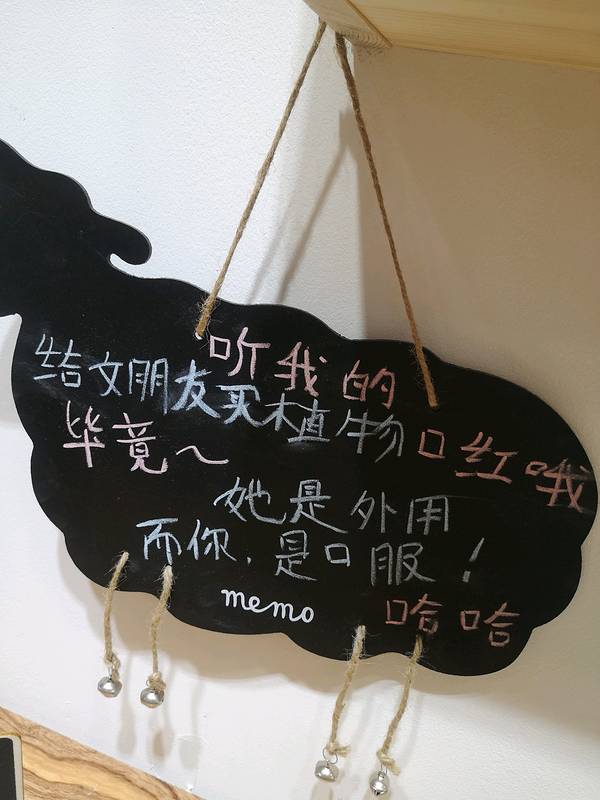 听我的
给女朋友买植物口红哦
毕竟～
她是外用
而你,是口服！
memo
哈哈